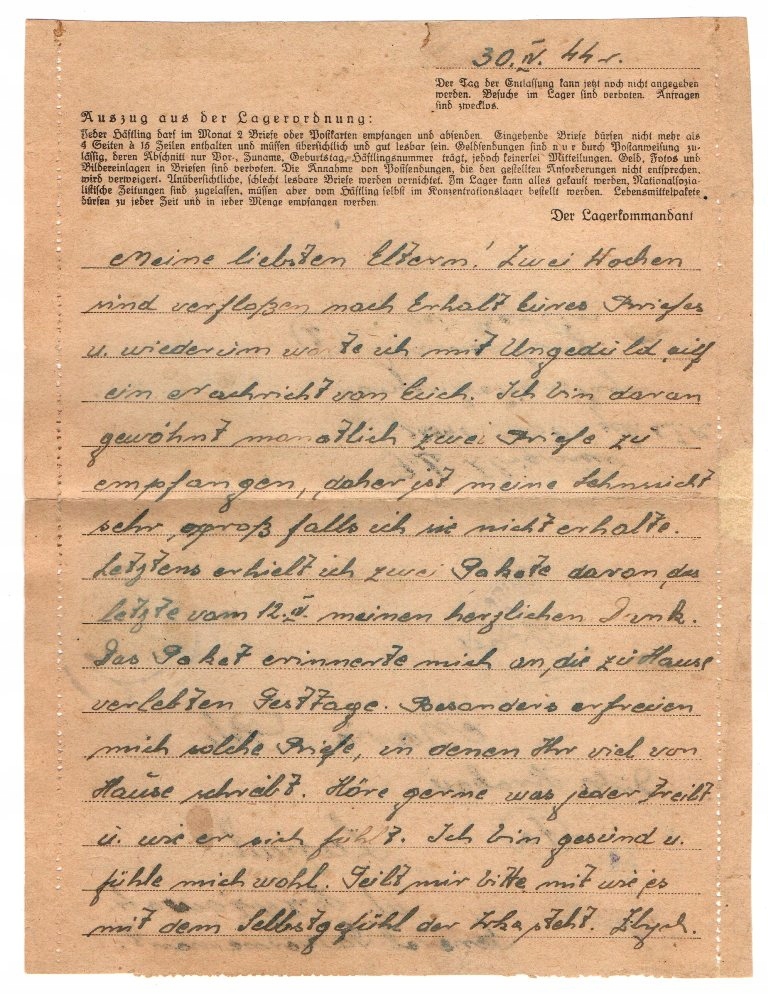 30. IV. 44 r.
Der Tag der Entlassung kann jetzt noch nicht angegeben
werden. Besuche im Lager sind verboten. Anfragen
sind zwecklos.
Auszug aus der Lagerordnung:
Jeder Häftling darf im Monat 2 Briefe oder Postkarten empfangen und absenden. Eingehende Briefe dürfen nicht mehr als
4 Seiten à 15 Zeilen enthalten und müssen übersichtlich und gut lesbar sein. Geldsendungen sind nur durch Postanweisung zu-
lässig, deren Abschnitt nur Vor-, Zuname, Geburtstag, Häftlingsnummer trägt, jedoch keinerlei Mitteilungen. Geld, Fotos und
Bildereinlagen in Briefen sind verboten. Die Annahme von Postsendungen, die den gestellten Anforderungen nicht entsprechen,
wird verweigert. Unübersichtliche, schlecht lesbare Briefe werden vernichtet. Im Lager kann alles gekauft werden, Nationalsozia-
listische Zeitungen sind zugelassen, müssen aber vom Häftling selbst im Konzentrationslager bestellt werden. Lebensmittelpakete
dürfen zu jeder Zeit und in jeder Menge empfangen werden.
Der Lagerkommandant
Meine liebsten Eltern! Zwei Wochen
sind verfloßen nach Erhalt Eures Briefes
u. wiederum warte ich mit Ungeduld auf
ein Nachricht von Euch. Ich bin daran
gewöhnt monatlich zwei Briefe zu
empfangen, daher ist meine Sehnsucht
sehr groß falls ich sie nicht erhalte.
Letztens erhielt ich zwei Pakete davon das
letzte vom 12. IV. meinen herzlichen Dank.
Das Paket erinnerte mich an, die zu Hause
verlebten Festtage. Besonders erfreuen
mich solche Briefe, in denen Ihr viel von
Hause schreibt. Höre gerne was jeder treibt
u. wie er sich fühlt. Ich bin gesund u.
fühle mich wohl. Teilt mir bitte mit wie es
mit dem Selbstgefühl der steht. Zbysz.